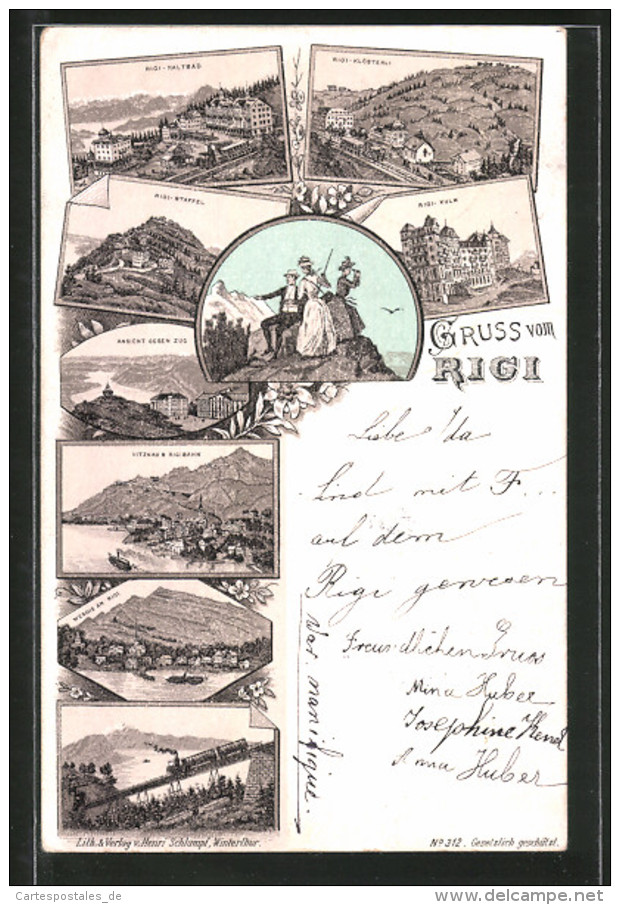 RIGI-KALTBAD
RIGI-KLÖSTERLI
RIGI-STAFFEL
RIGI-KULM
ANSICHT GEGEN ZUG
GRUSS VOM
RIGI
VITZNAU & RIGIBAHN
WEGGIS AM RIGI
Liebe Ida
Sind mit F...
auf dem
Rigi gewesen
Freundlichen Gruss
Mina Huber
Josephine
Anna Huber
War manifique.
Lith. & Verlag v. Henri Schlumpf, Winterthur.
No 312. Gesetzlich geschützt.
Cartespostales_de
www.delcampe.net